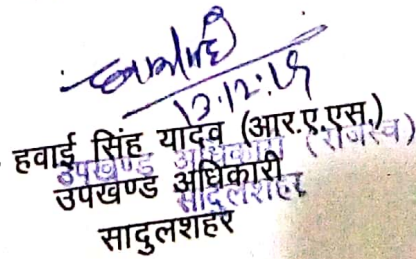 13.12.19
हवाई सिंह यादव (आर.ए.एस.)
उपखण्ड अधिकारी (राजस्व)
उपखण्ड अधिकारी
सादुलशहर
सादुलशहर